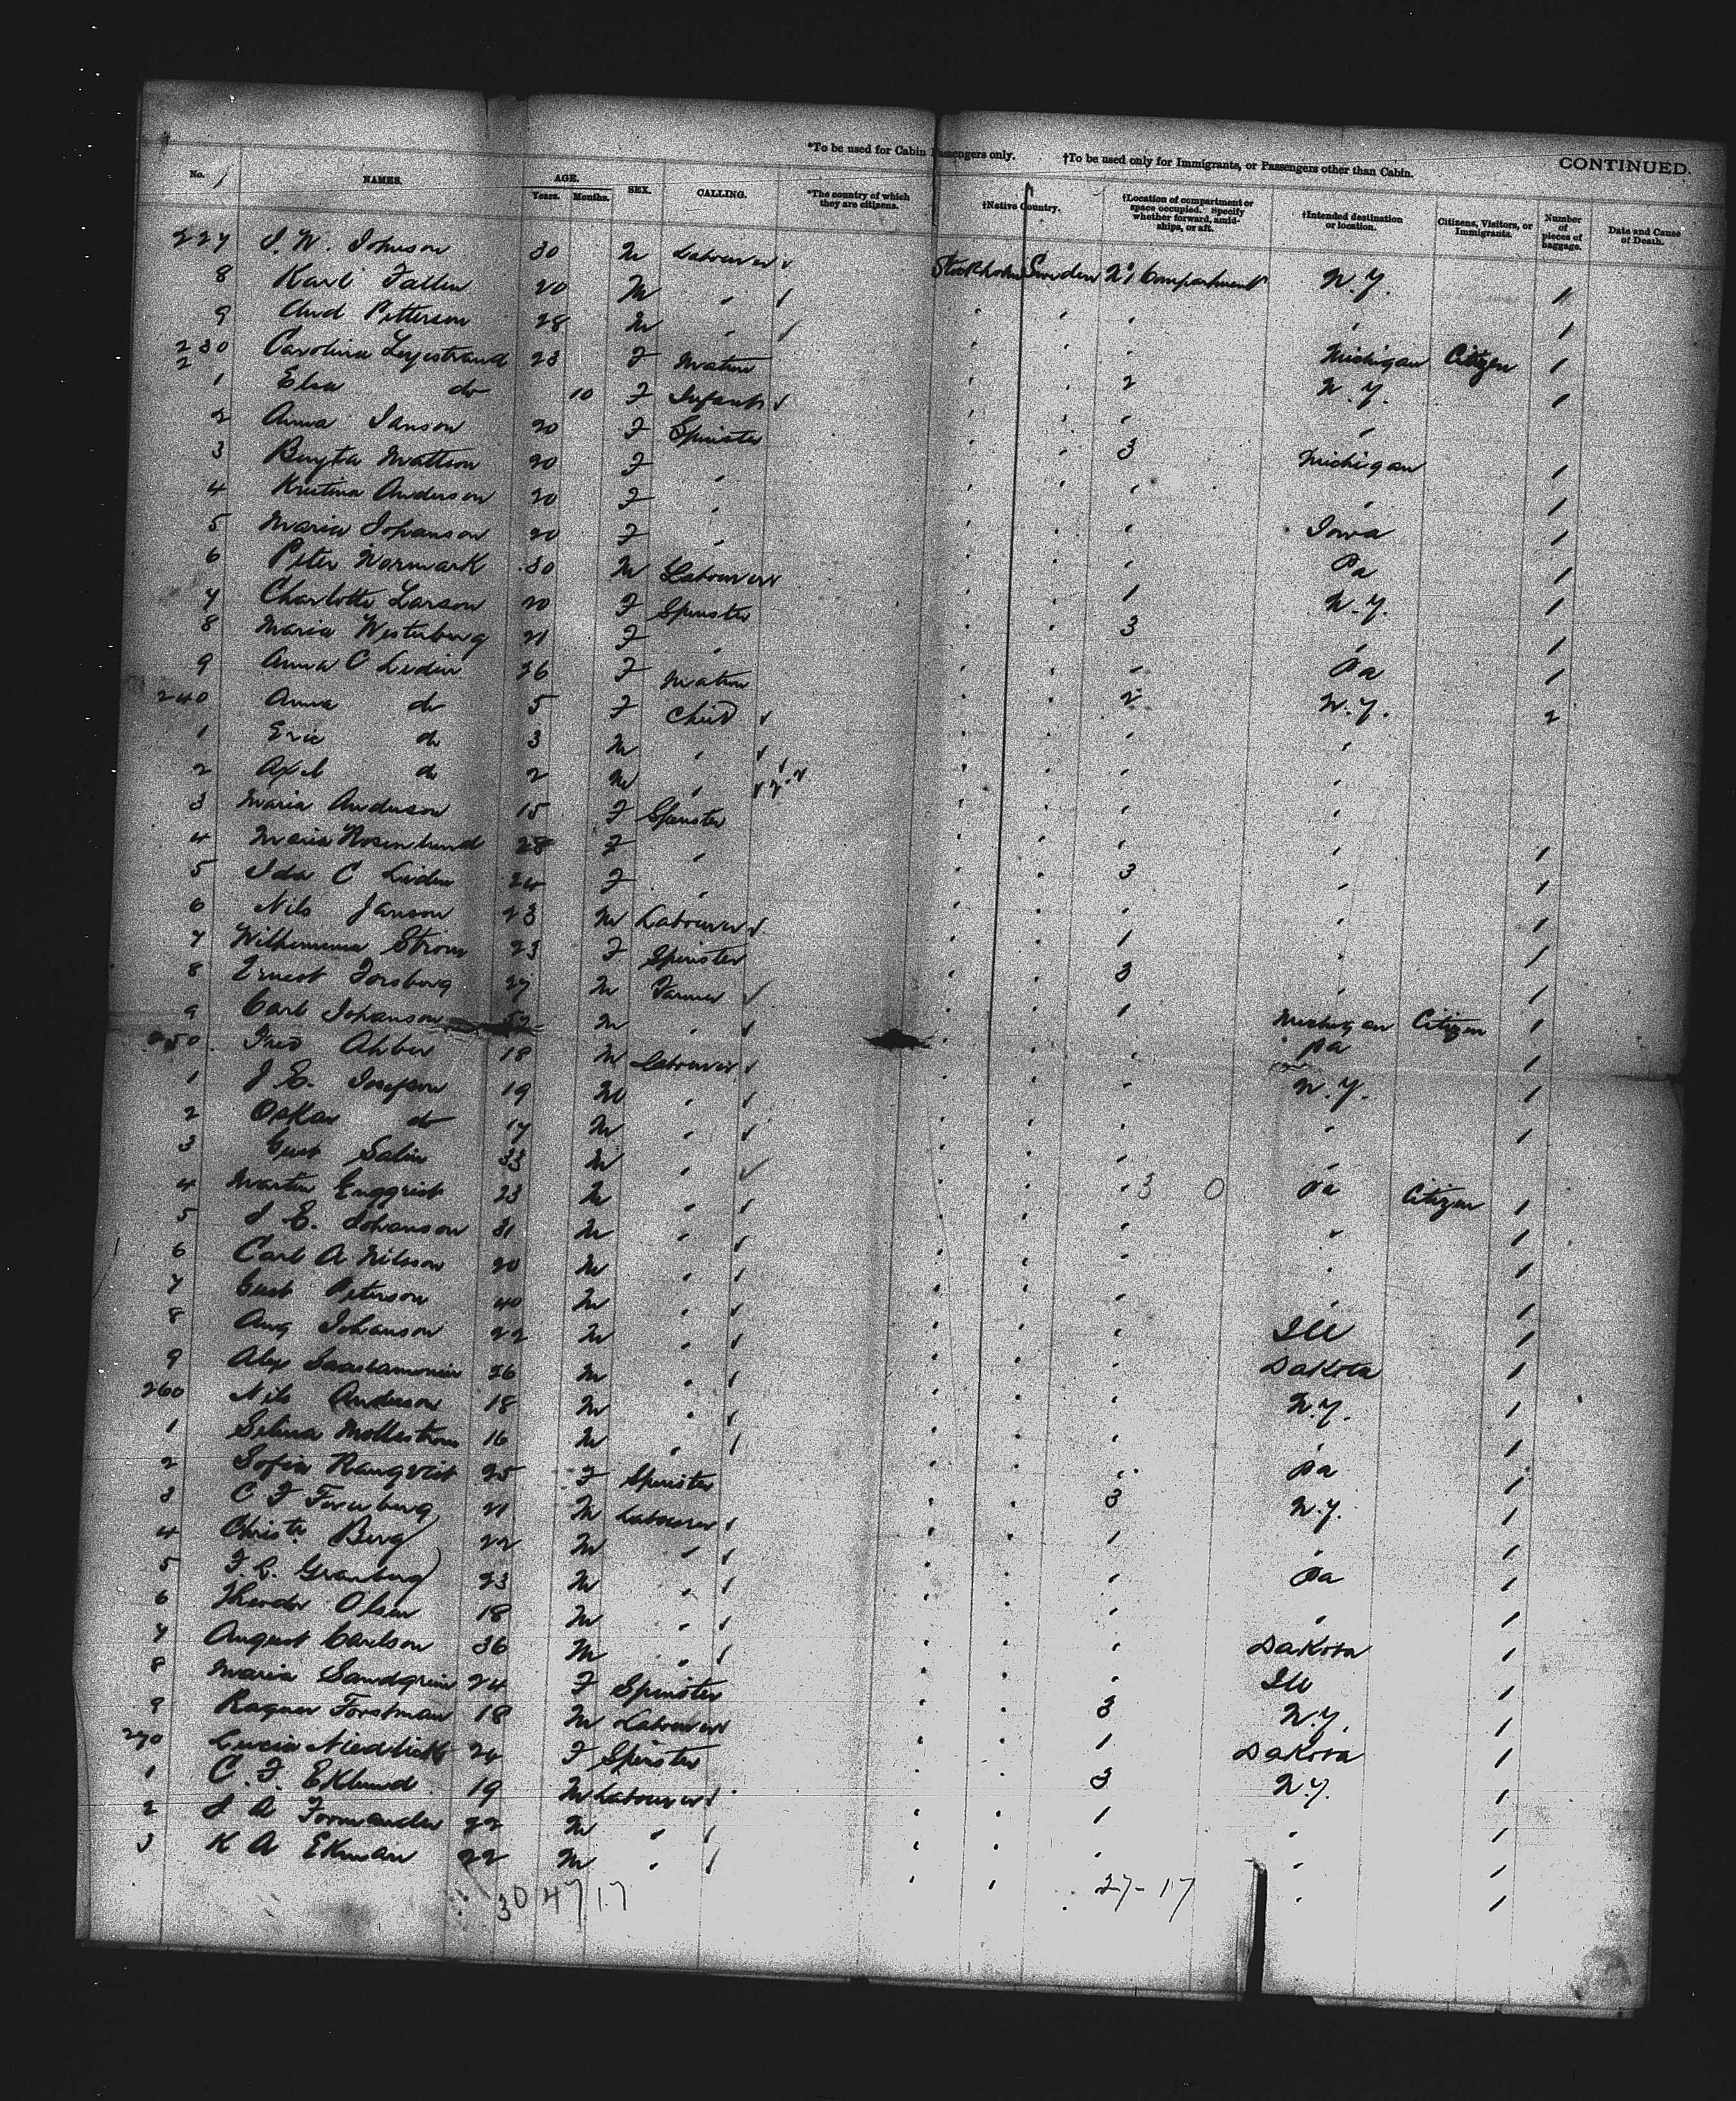 *To be used for Cabin Passengers only. †To be used only for Immigrants, or Passengers other than Cabin. CONTINUED.
No. NAMES. AGE. Years. Months. SEX. CALLING. *The country of which they are citizens. †Native Country. †Location of compartment or space occupied. Specify whether forward, amidships, or aft. †Intended destination or location. Citizens, Visitors, or Immigrants. Number of pieces of baggage. Date and Cause of Death.
227 J. W. Johnson 30 M Labourer Stockholm Sweden No 1 Compartment N.Y. 1
8 Karl 20 M " " " " " 1
9 And Petterson 28 M " " " " Michigan Citizen 1
230 Carolina 23 F Matron " " 2 N.Y. 1
1 Elsa do 10 F Infant " " " "
2 Anna Janson 20 F Spinster " " 3 Michigan 1
3 Bryta Mattson 20 F " " " " " 1
4 Kristina Anderson 20 F " " " " Iowa 1
5 Maria Johanson 20 F " " " " Pa 1
6 Peter Wormark 30 M Labourer " " 1 N.Y. 1
7 Charlotte Larson 20 F Spinster " " 3 " 1
8 Maria Westerberg 21 F " " " " Pa 1
9 Anna C Lidin 26 F Matron " " 2 N.Y. 2
240 Anna do 5 F Child " " " "
1 Eric do 3 M " " " " "
2 Axel do 2 M " " " " "
3 Maria Anderson 15 F Spinster " " " " 1
4 Maria Rosenlund 28 F " " " 3 " 1
5 Ida C Liden 24 F " " " " " 1
6 Nils Janson 23 M Labourer " " 1 " 1
7 Strom 23 F Spinster " " 3 " 1
8 Ernest Forsberg 27 M Farmer " " 1 Michigan Citizen 1
9 Carl Johanson 52 M " " " " Pa 1
250 Fred 18 M Labourer " " " N.Y. 1
1 J E. 19 M " " " " " 1
2 Oskar do 17 M " " " " "
3 Gust Salin 33 M " " " " 3 0 Pa Citizen 1
4 Martin Engqvist 23 M " " " " " 1
5 J. E. Johanson 31 M " " " " " 1
6 Carl A. Nilsson 20 M " " " " " 1
7 Gust Peterson 40 M " " " " Ill 1
8 Aug Johanson 22 M " " " " Dakota 1
9 Alex 26 M " " " " N.Y. 1
260 Nils Anderson 18 M " " " " " 1
1 Selma 16 M " " " " Pa 1
2 Sofia Rangvist 25 F Spinster " " 3 N.Y. 1
3 C F 21 M Labourer " " 1 " 1
4 Christn Berg 22 M " " " " Pa 1
5 F. C. Granberg 23 M " " " " " 1
6 Theodor Olsen 18 M " " " " Dakota 1
7 August Carlson 36 M " " " " Ill 1
8 Maria Sandgrin 24 F Spinster " " 3 N.Y. 1
9 Ragnar Forstman 18 M Labourer " " 1 Dakota 1
270 24 F Spinster " " 3 N.Y. 1
1 C. F. Eklund 19 M Labourer " " 1 " 1
2 J A 22 M " " " " " 1
3 K A Ekman 22 M " " " " " 1
30 47 17 27-17